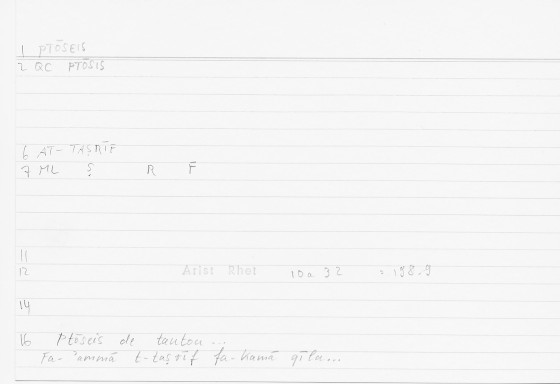 1 PTŌSEIS
2 QC PTŌSIS
6 AT-TAṢRĪF
7 ML Ṣ R F
11
12 Arist Rhet 10a 32 = 198.9
14
16 Ptōseis de tautou ...
Fa-'ammā t-taṣrīf fa-kamā qīla...